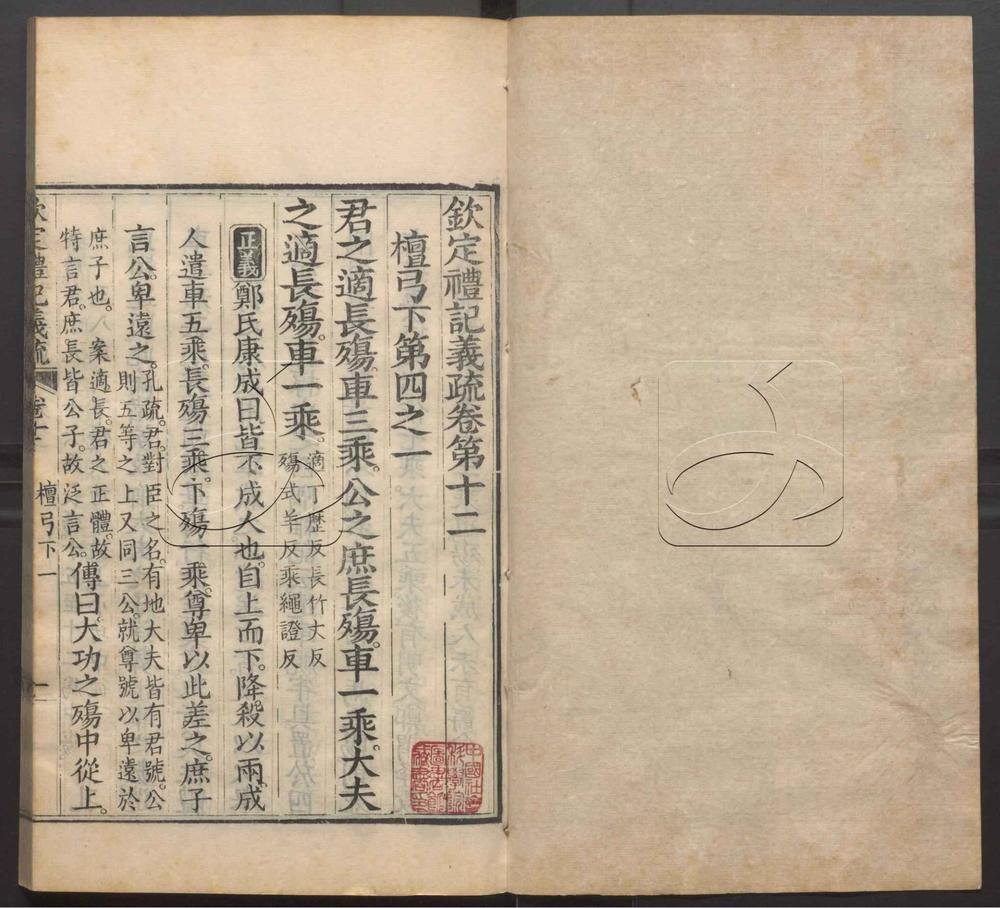 欽定禮記義疏卷第十二
檀弓下第四之一
君之適長殤。車三乘。公之庶長殤。車一乘。大夫
之適長殤。車一乘。
適丁歷反長竹丈反
殤式羊反乘繩證反
正義鄭氏康成曰皆不成人也。自上而下。降殺以兩。成
人遣車五乘。長殤三乘。下殤一乘。尊卑以此差之。庶子
言公。卑遠之。
孔疏。君。對臣之名。有地大夫皆有君號。公
則五等之上又同三公。就尊號以卑遠於
庶子也。案適長。君之正體。故
特言君。庶長皆公子。故泛言公。
傳曰。大功之殤中從上。
欽定禮記義疏
卷十二
檀弓下
一